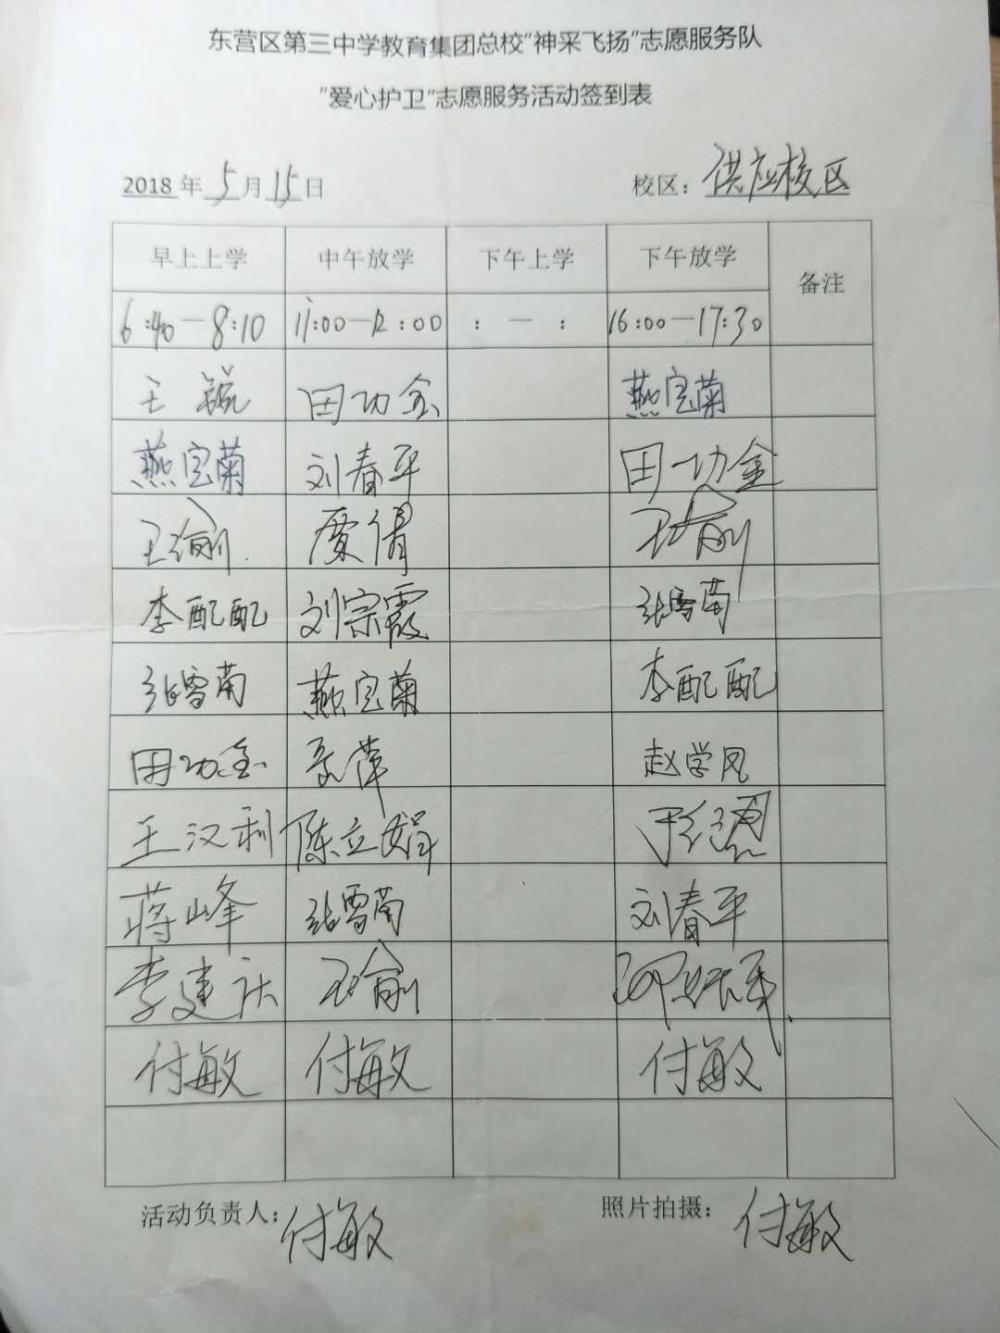 东营区第三中学教育集团总校“神采飞扬”志愿服务队
“爱心护卫”志愿服务活动签到表
2018 年 5 月 15 日 校区： 供应校区
早上上学 中午放学 下午上学 下午放学 备注
6:40—8:10 11:00—12:00 : — : 16:00—17:30
王锐 田功金 燕宝菊
燕宝菊 刘春平 田功金
王瑜 贾倩 王瑜
李配配 刘宗霞 张雪菊
张雪菊 燕宝菊 李配配
田功金 岳萍 赵学凤
王汉利 陈立娟
蒋峰 张雪菊 刘春平
李建 王瑜
付敏 付敏 付敏
活动负责人：付敏 照片拍摄：付敏